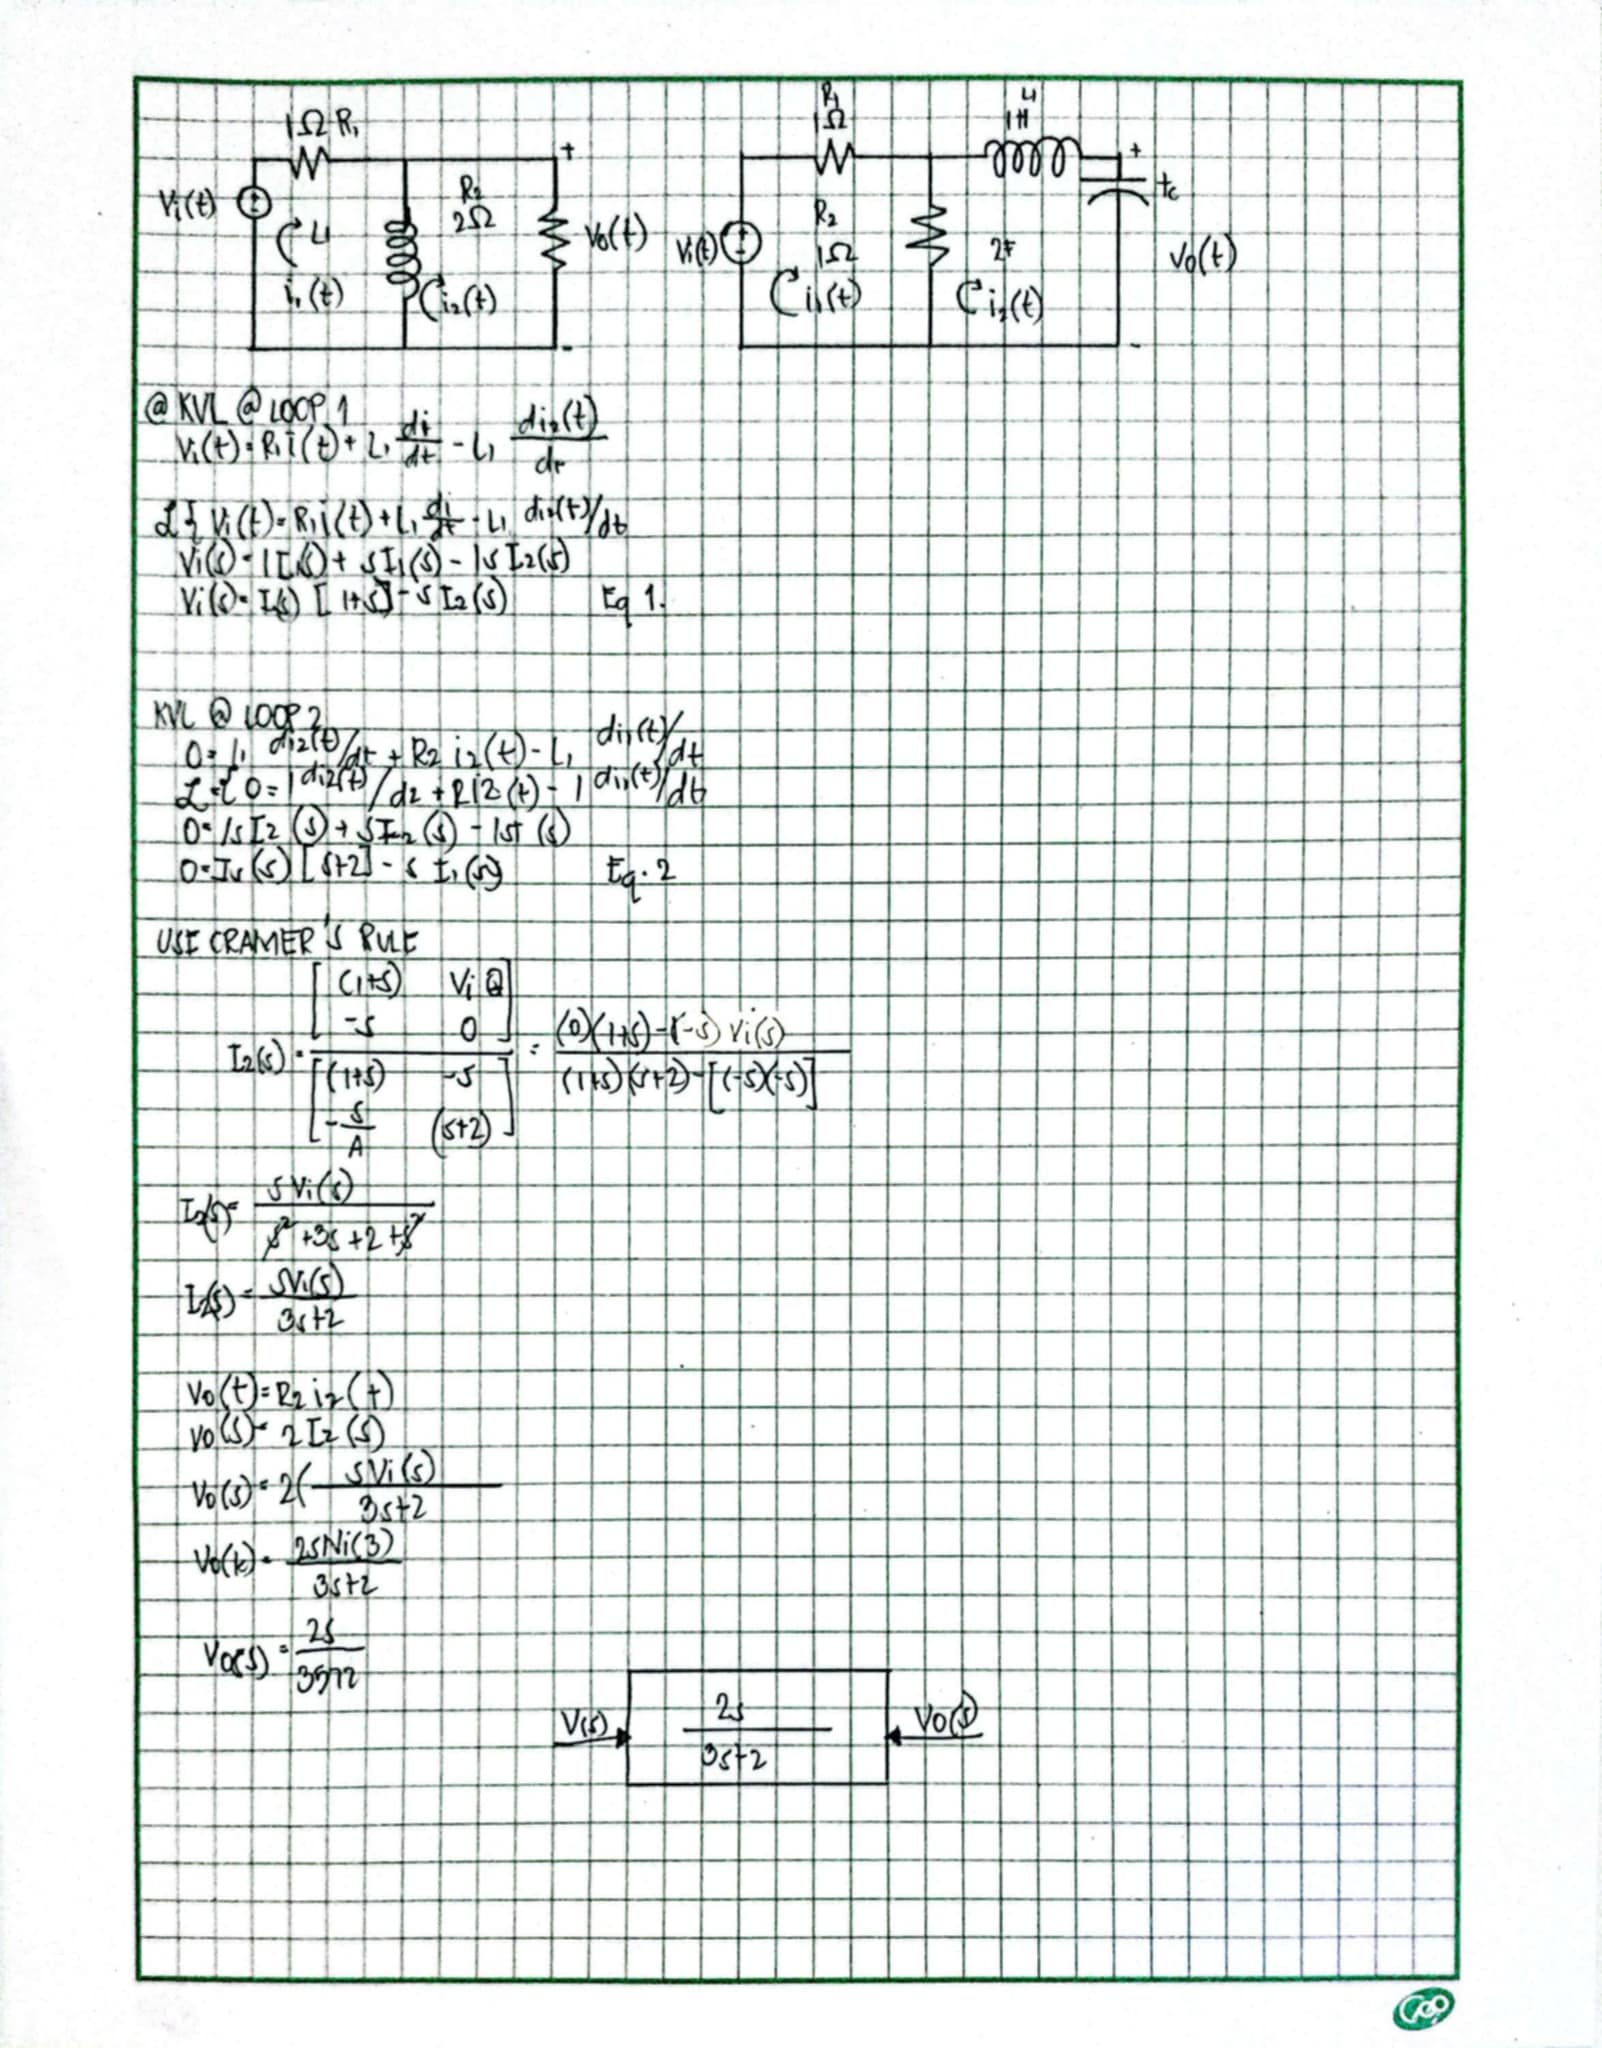 1Ω R₁
Vi(t)
L1
i₁(t)
R₂
2Ω
i₂(t)
+
Vo(t)
-
R₁
1Ω
L1
1H
Vi(t)
R₂
1Ω
i₁(t)
2F
i₂(t)
+
Vo(t)
-
@ KVL @ LOOP 1
Vi(t) = R₁i(t) + L₁ di/dt - L₁ di₂(t)/dt
ℒ{ Vi(t) = R₁i(t) + L₁ di/dt - L₁ di₂(t)/dt
Vi(s) = 1I₁(s) + sI₁(s) - 1s I₂(s)
Vi(s) = I₁(s) [1+s] - s I₂(s) Eq 1.
KVL @ LOOP 2
0 = L₁ di₂(t)/dt + R₂ i₂(t) - L₁ di₁(t)/dt
ℒ = { 0 = 1 di₂(t)/dz + Ri2(t) - 1 di₁(t)/dt
0 = 1s I₂(s) + I₂(s) - 1sI(s)
0 = (s) [s+2] - s I₁(s) Eq. 2
USE CRAMER'S RULE
I₂(s) = [ (1+s) Vi -s 0 ] / [ (1+s) -s -s/A (s+2) ] = (0)(1+s) - (-s) Vi(s) / (1+s)(s+2) - [(-s)(-s)]
I₂(s) = s Vi(s) / s² + 3s + 2 + s²
I₂(s) = sVi(s) / 3s+2
Vo(t) = R₂ i₂(t)
Vo(s) = 2 I₂(s)
Vo(s) = 2( s Vi(s) / 3s+2
Vo(k) = 2sNi(3) / 3s+2
Vo(s) = 2s / 3s+2
V(s) 2s / 3s+2 Vo(s)